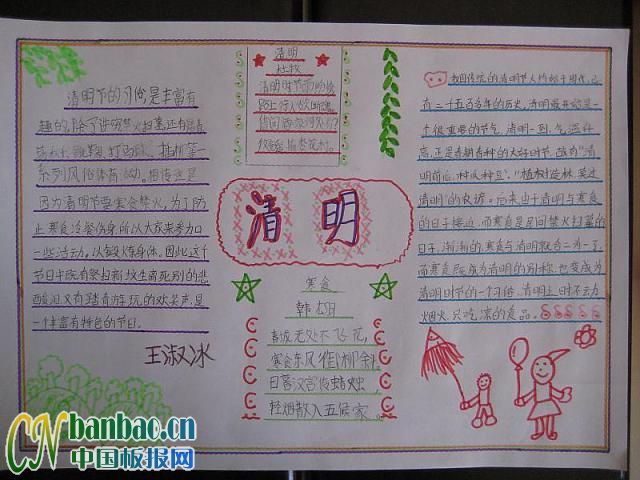 清明节的习俗是丰富有
趣的,除了讲究禁火扫墓,还有踏青
荡秋千、蹴鞠、打马球、插柳等一
系列风俗体育活动。相传这是
因为清明节要寒食禁火,为了防
止寒食冷餐伤身,所以大家来参加
一些活动,以锻炼身体,因此这个
节日中既有祭扫新坟生离死别的悲
酸泪,又有踏青游玩的欢笑声,是
一个丰富有特色的节日。
王淑冰
清明
杜牧
清明时节雨纷纷
路上行人欲断魂
借问酒家何处有
牧童遥指杏花村
清明
寒食
韩翃
春城无处不飞花,
寒食东风御柳斜
日暮汉宫传蜡烛
轻烟散入五侯家
我国传统的清明节大约始于周代,已
有二千五百多年的历史,清明最开始是一
个很重要的节气,清明一到,气温升
高,正是春耕春种的大好时节,故有“清
明前后,种瓜种豆”。“植树造林,莫过
清明”的农谚。后来由于清明与寒食
的日子接近,而寒食是民间禁火扫墓的
日子,渐渐的,寒食与清明就合二为一了,
而寒食既成为清明的别称,也变成为
清明时节的一个习俗,清明之日不动
烟火,只吃凉的食品。
CN banbao.cn
中国板报网